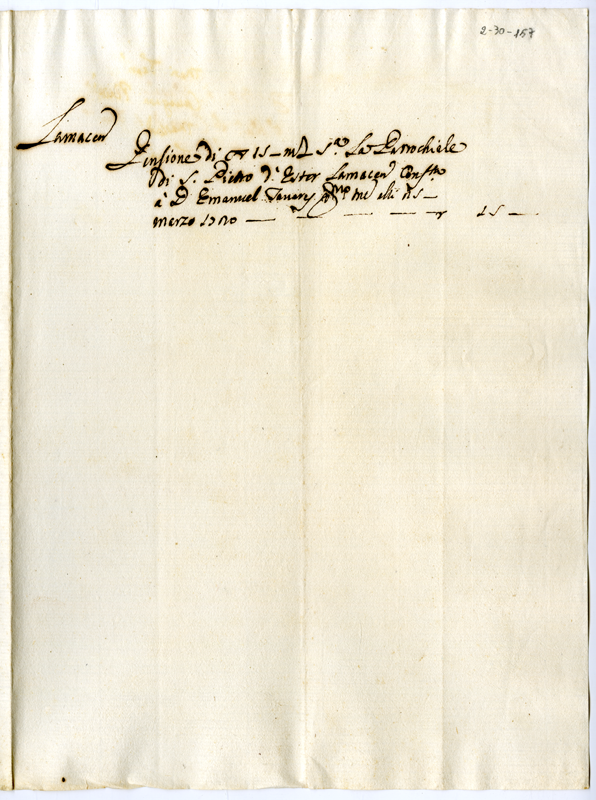 2-30-157
Lamacen
Pensione di 15 - mta s.a La Parrochiale
di S. Pietro d'Ester Lamacen Const.
à D Emanuel Tavares me alli 15 -
marzo — — — — — 15 —